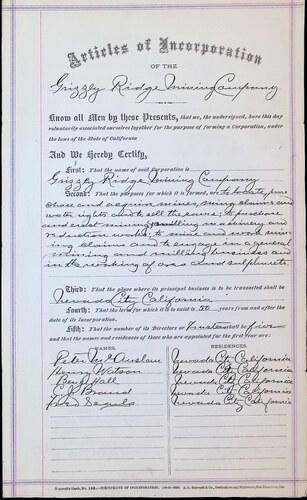 Articles of Incorporation
OF THE
Grizzly Ridge Mining Company
Know all Men by these Presents, that we, the undersigned, have this day
voluntarily associated ourselves together for the purpose of forming a Corporation, under
the laws of the State of California
And We Hereby Certify,
First: That the name of said corporation is
Grizzly Ridge Mining Company
Second: That the purposes for which it is formed, are to locate, pur
chase and acquire mines, mining claims and
water rights and to sell the same; to purchase
and erect mining, milling and
reduction works to mine and work min
ing claims and to engage in a general
mining and milling business and
in the working of ores and sulphurets
Third: That the place where its principal business is to be transacted shall be
Nevada City California
Fourth: That the term for which it is to exist is 50 years from and after the
date of its Incorporation.
Fifth: That the number of its Directors or Trustees shall be five
and that the names and residences of those who are appointed for the first year are:
NAMES. RESIDENCES.
Nevada City California
Henry Watson Nevada City California
Hall Nevada City California
C. R. Nevada City California
Fred Nevada City California